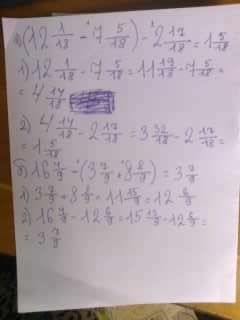 а) (12 1/18 - 7 5/18) - 2 17/18 = 1 5/18
1) 12 1/18 - 7 5/18 = 11 19/18 - 7 5/18 =
= 4 14/18
2) 4 14/18 - 2 17/18 = 3 32/18 - 2 17/18 =
= 1 5/18
б) 16 7/9 - (3 7/9 + 8 8/9) = 3 7/9
1) 3 7/9 + 8 8/9 = 11 15/9 = 12 6/9
2) 16 7/9 - 12 6/9 = 15 15/9 - 12 6/9 =
= 3 7/9